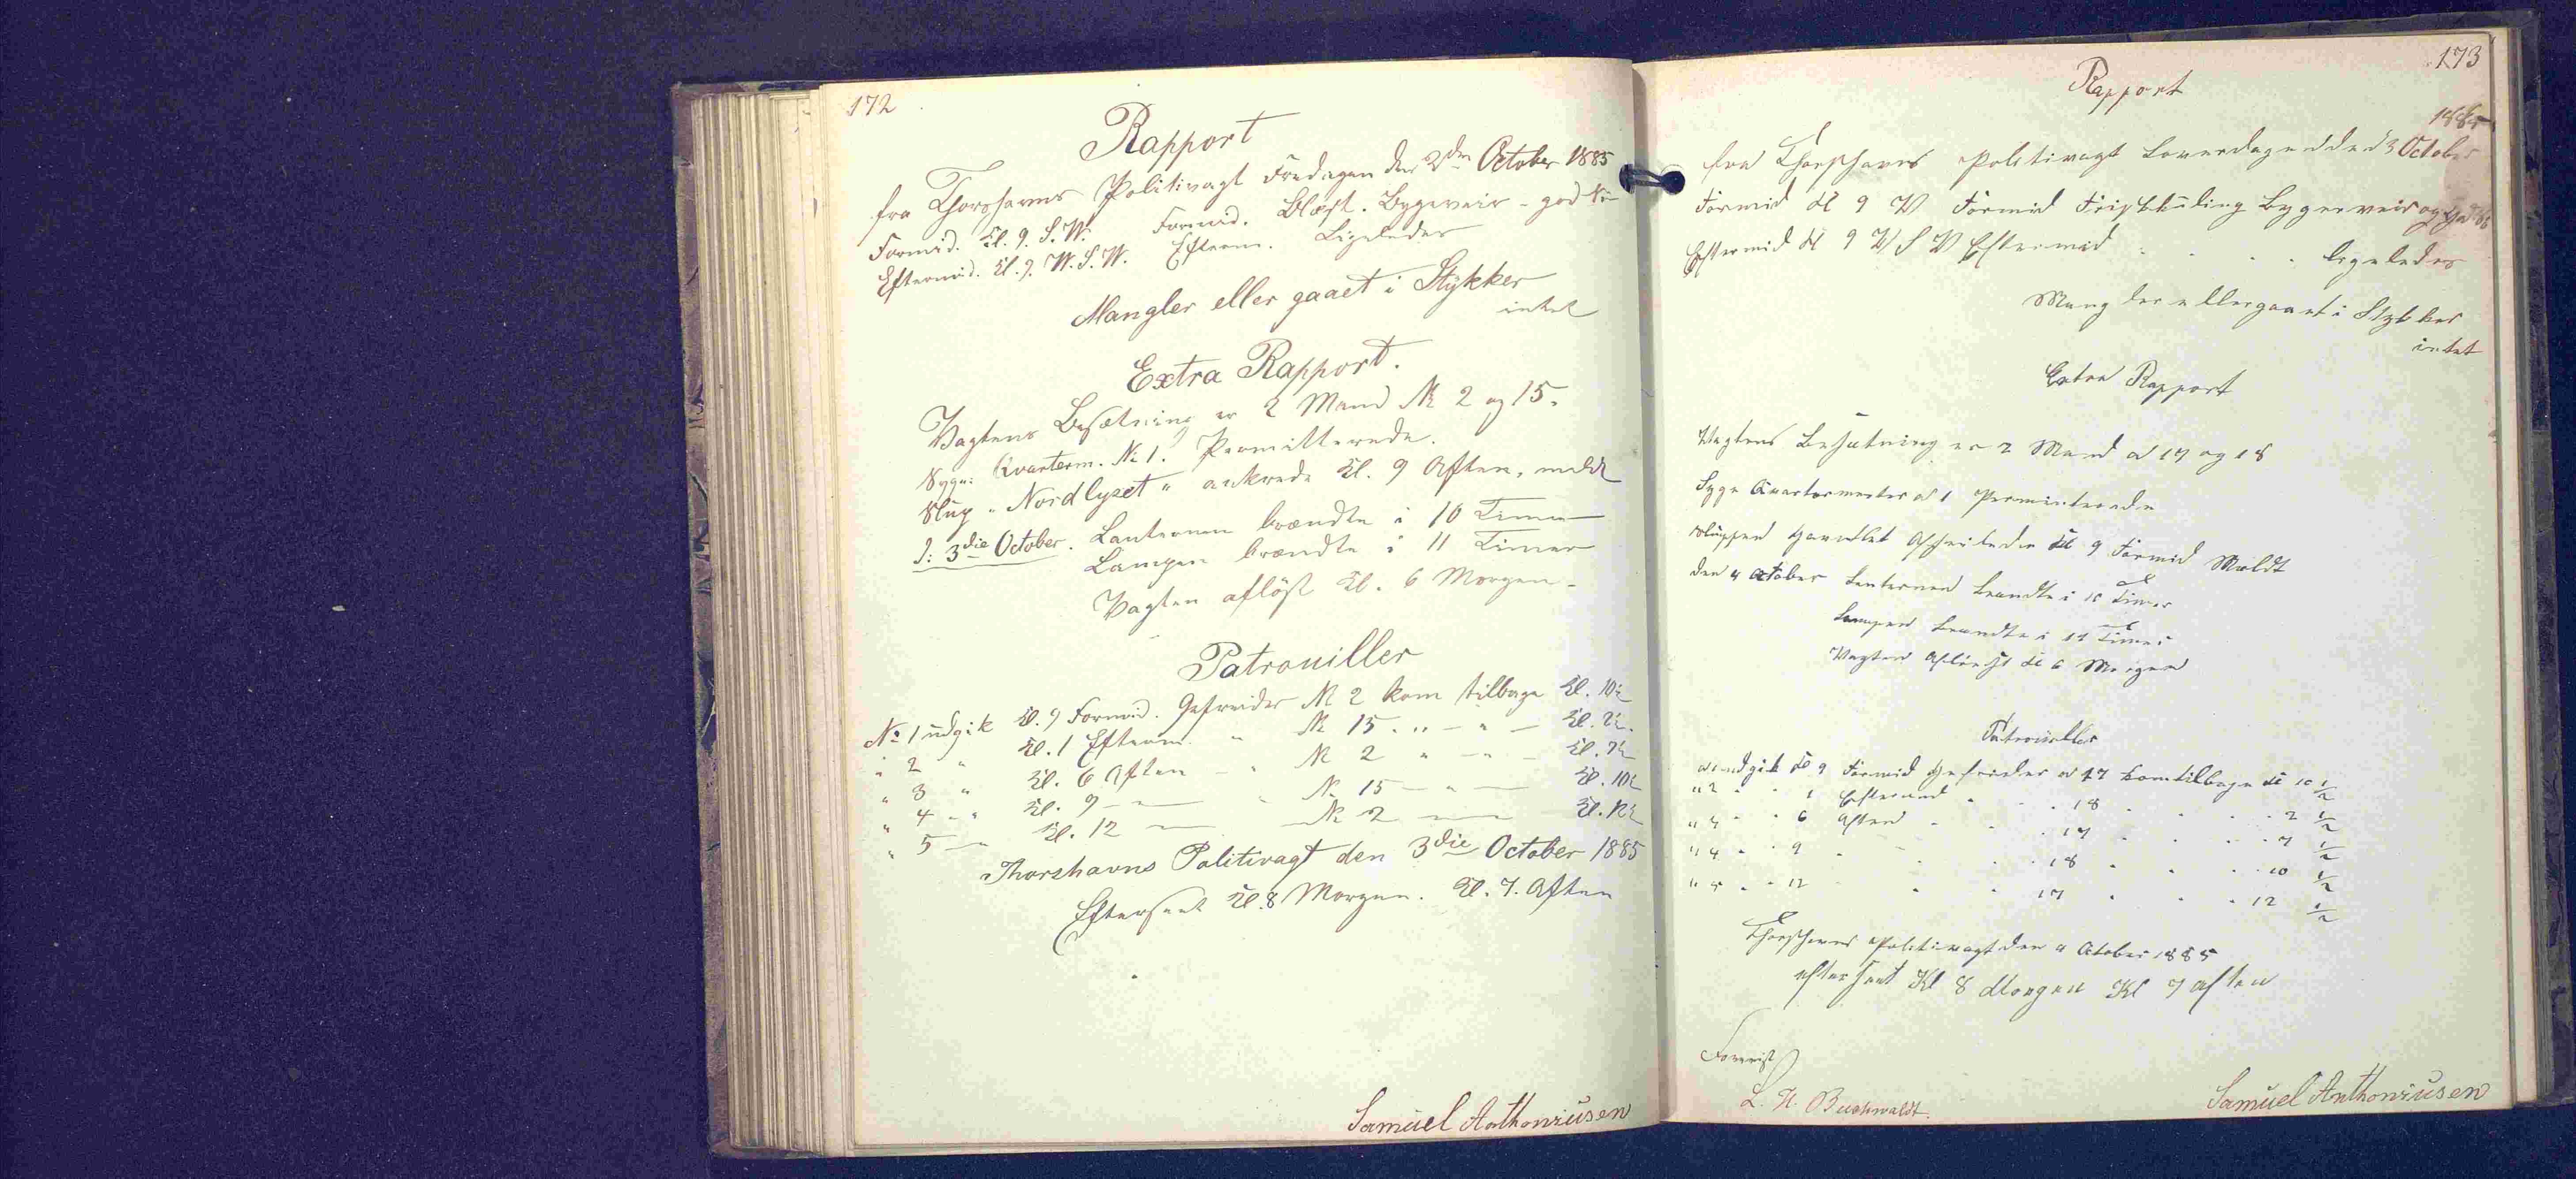 172
Rapport
fra Thorshavns Politivagt Fredagen den 2den October 1885
Formid. Kl. 9. S.W. Formid. Blæst. Bygeveir - god
Eftermid. Kl. 9. W.S.W. Efterm. Ligeledes
Mangler eller gaaet i Stykker
intet
Extra Rapport.
Vagtens Besætning er 2 Mand № 2 og 15.
Syge: Kvarterm. № 1. Permitterede.
Slup "Nordlyset" ankrede Kl. 9 Aften, meldt
d: 3die October. Lanternen brændte i 10 Timer
Lampen brændte i 11 Timer
Vagten afløst Kl. 6 Morgen -
Patrouiller
№ 1 udgik Kl. 9 Formid. Gefreider № 2 kom tilbage Kl. 10½
" 2 " Kl. 1 Efterm. " № 15 . " - " - Kl. 2½.
" 3 " Kl. 6 Aften - " № 2 " - " - Kl. 7½
" 4 - " Kl. 9 - " - " № 15 - " - Kl. 10½
" 5 - " Kl. 12 - № 2 - Kl. 12½
Thorshavns Politivagt den 3die October 1885
Efterseet Kl. 8 Morgen. Kl. 7. Aften
Samuel Anthoniusen
173
Rapport
1885
fra Thorshavns Politivagt Løverdagen den 3 October
Formid Kl 9 W Formid Friskkuling Bygerveir og
Eftermid Kl 9 W S W Eftermid . . . . ligeledes
Mangler ellergaaet i Stykker
intet
Extra Rapport
Vagtens Besætning er 2 Mand № 17 og 18
Syge Kvartermester № 1 Permiterede
Sluppen Afseilede Kl 9 Formid Meldt
den 4 October Lanternen brændte i 10 Timer
Lampen brændte i 11 Timer
Vagten Afløst Kl 6 Morgen
Patrouiller
№ 1 udgik Kl 9 Formid Gefreider № 17 kom tilbage Kl 10 ½
" 2 " " 1 Eftermid " " 18 " " " 2 ½
" 3 " " 6 Aften " " 17 " " " 7 ½
" 4 " " 9 " " " 18 " " " 10 ½
" 5 " " 12 " " 17 " " " 12 ½
Thorshavns Politivagt den 4 October 1885
efterseet Kl 8 Morgen Kl 7 aften
Forevist
L. H. Buchwaldt.
Samuel Anthoniusen